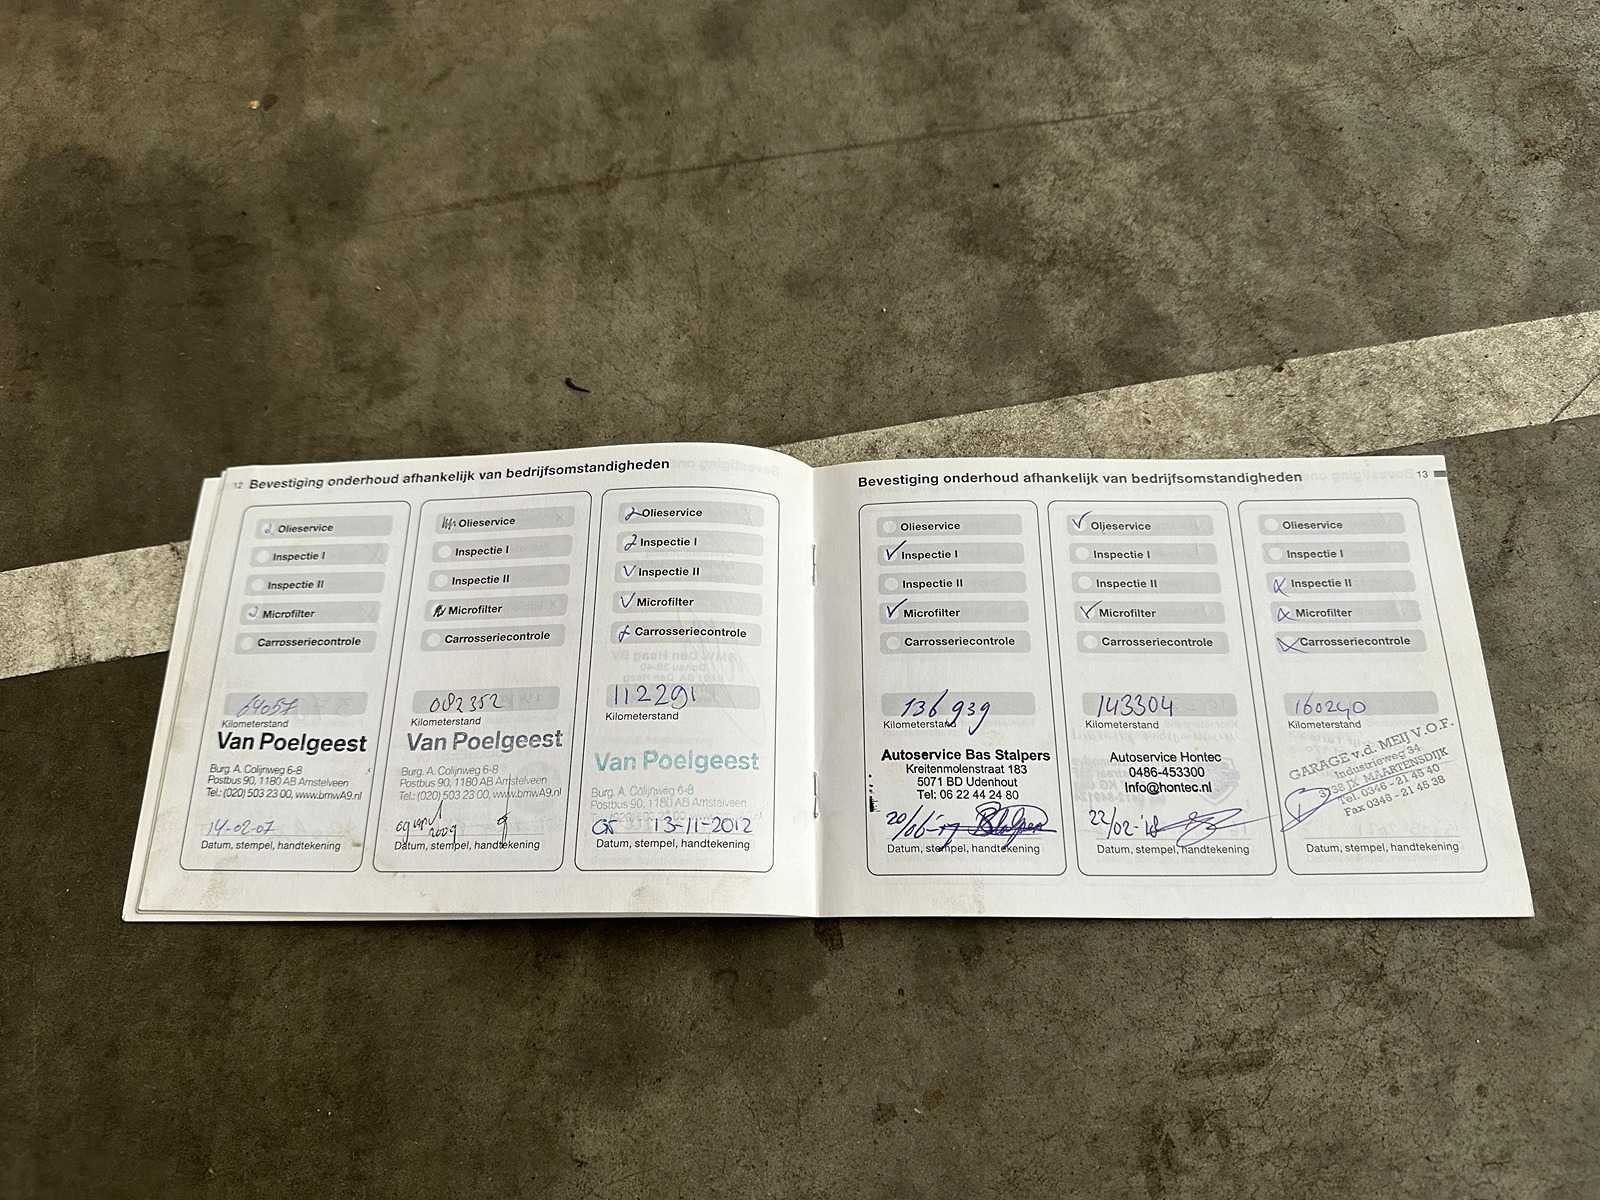 12 Bevestiging onderhoud afhankelijk van bedrijfsomstandigheden
Olieservice
Inspectie I
Inspectie II
Microfilter
Carrosseriecontrole
64057
Kilometerstand
Van Poelgeest
Burg. A. Colijnweg 6-8
Postbus 90, 1180 AB Amstelveen
Tel.: (020) 503 23 00, www.bmwA9.nl
14-02-07
Datum, stempel, handtekening
Olieservice
Inspectie I
Inspectie II
Microfilter
Carrosseriecontrole
082352
Kilometerstand
Van Poelgeest
Burg. A. Colijnweg 6-8
Postbus 90, 1180 AB Amstelveen
Tel.: (020) 503 23 00, www.bmwA9.nl
2009
Datum, stempel, handtekening
Olieservice
Inspectie I
Inspectie II
Microfilter
Carrosseriecontrole
112291
Kilometerstand
Van Poelgeest
Burg. A. Colijnweg 6-8
Postbus 90, 1180 AB Amstelveen
13-11-2012
Datum, stempel, handtekening
Bevestiging onderhoud afhankelijk van bedrijfsomstandigheden 13
Olieservice
Inspectie I
Inspectie II
Microfilter
Carrosseriecontrole
136939
Kilometerstand
Autoservice Bas Stalpers
Kreitenmolenstraat 183
5071 BD Udenhout
Tel: 06 22 44 24 80
20/06-'17
Datum, stempel, handtekening
Olieservice
Inspectie I
Inspectie II
Microfilter
Carrosseriecontrole
143304
Kilometerstand
Autoservice Hontec
0486-453300
Info@hontec.nl
22/02-'18
Datum, stempel, handtekening
Olieservice
Inspectie I
Inspectie II
Microfilter
Carrosseriecontrole
160240
Kilometerstand
GARAGE v.d. MEIJ V.O.F.
Industrieweg 34
3738 JX MAARTENSDIJK
Tel. 0346 - 21 45 40
Fax 0346 - 21 45 38
Datum, stempel, handtekening